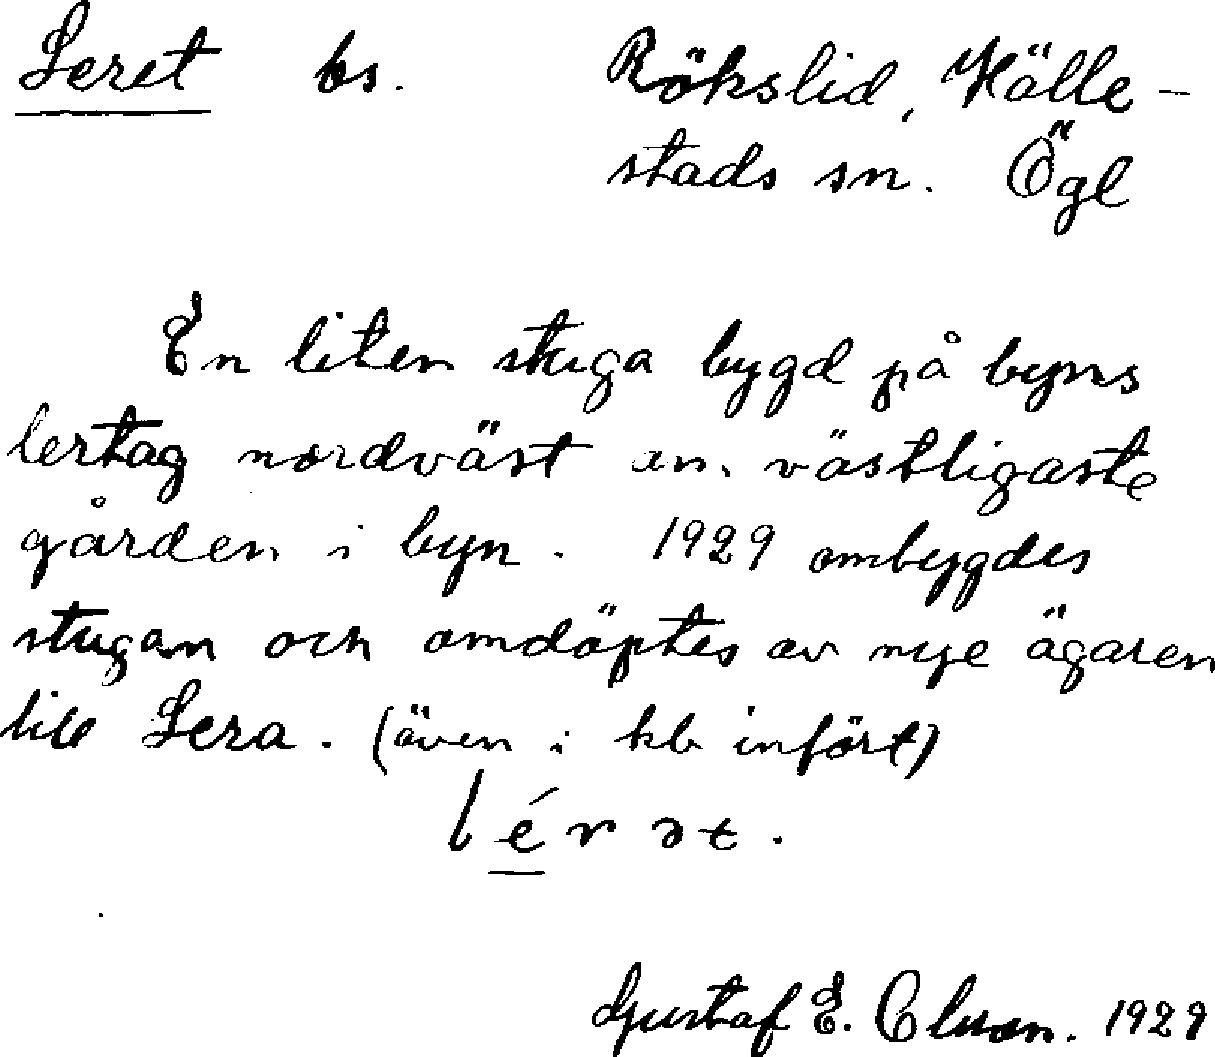 Leret bs. Rökslid, Hälle-
stads sn. Ögl
En liten stuga bygd på byns
lertag nordväst om västligaste
gården i byn. 1929 ombygdes
stugan och omdöptes av nye ägaren
till Lera. (även i kb infört)
lérət.
Gustaf E. 1929